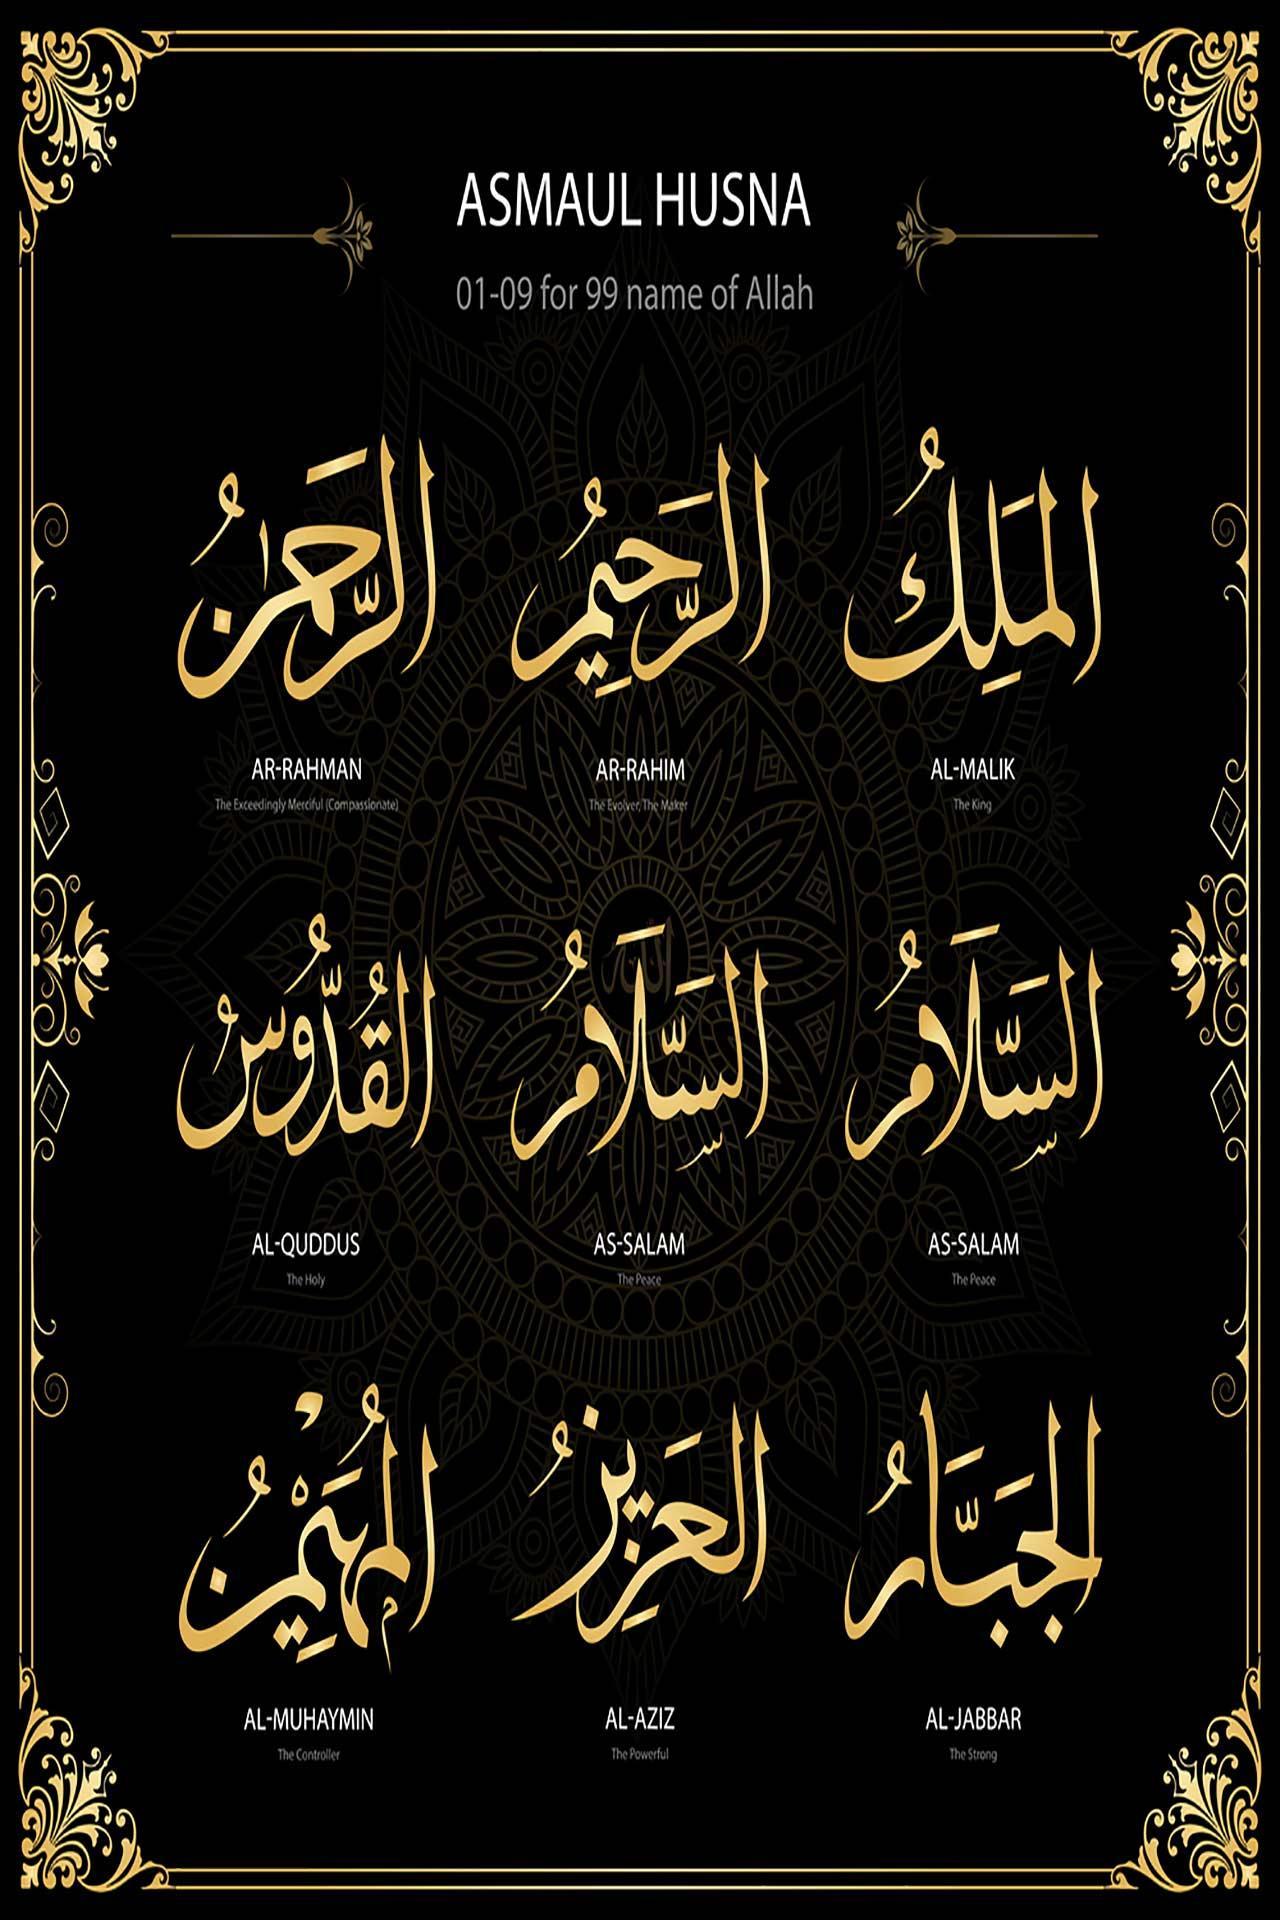 ASMAUL HUSNA
01-09 for 99 name of Allah
الرَّحْمَٰنُ الرَّحِيمُ المَلِكُ
AR-RAHMAN AR-RAHIM AL-MALIK
The Exceedingly Merciful (Compassionate) The Evolver, The Maker The King
القُدُّوسُ السَّلَامُ السَّلَامُ
AL-QUDDUS AS-SALAM AS-SALAM
The Holy The Peace The Peace
المُهَيْمِنُ العَزِيزُ الجَبَّارُ
AL-MUHAYMIN AL-AZIZ AL-JABBAR
The Controller The Powerful The Strong
الله